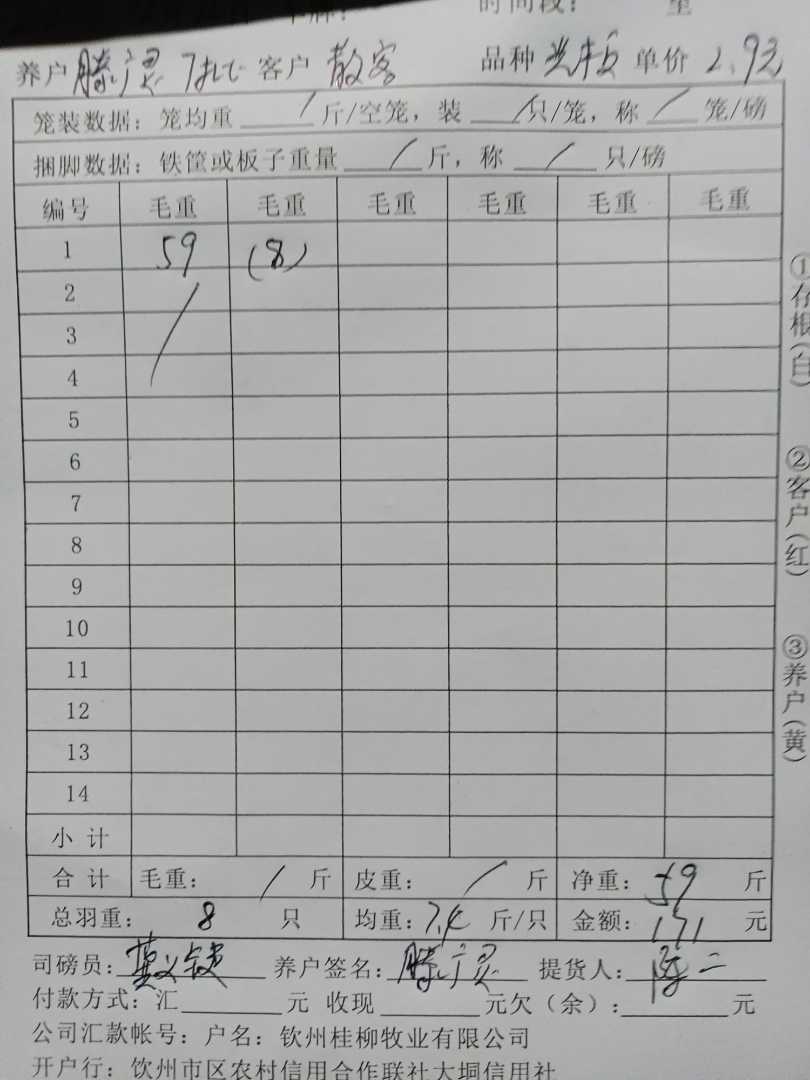 时间段：
养户 滕广灵 客户 散客 品种 光板 单价 2.9元
笼装数据：笼均重 / 斤/空笼，装 / 只/笼，称 / 笼/磅
捆脚数据：铁筐或板子重量 / 斤，称 / 只/磅
编号 毛重 毛重 毛重 毛重 毛重 毛重
1 59 (8)
2 /
3
4
5
6
7
8
9
10
11
12
13
14
小 计
合 计 毛重： / 斤 皮重： / 斤 净重：59 斤
总羽重： 8 只 均重：7.4 斤/只 金额：171 元
司磅员： 养户签名：滕广灵 提货人：
付款方式：汇 元 收现 元欠（余）： 元
公司汇款帐号：户名：钦州桂柳牧业有限公司
开户行：饮州市区农村信用合作联社大垌信用社
①存根(白)
②客户(红)
③养户(黄)